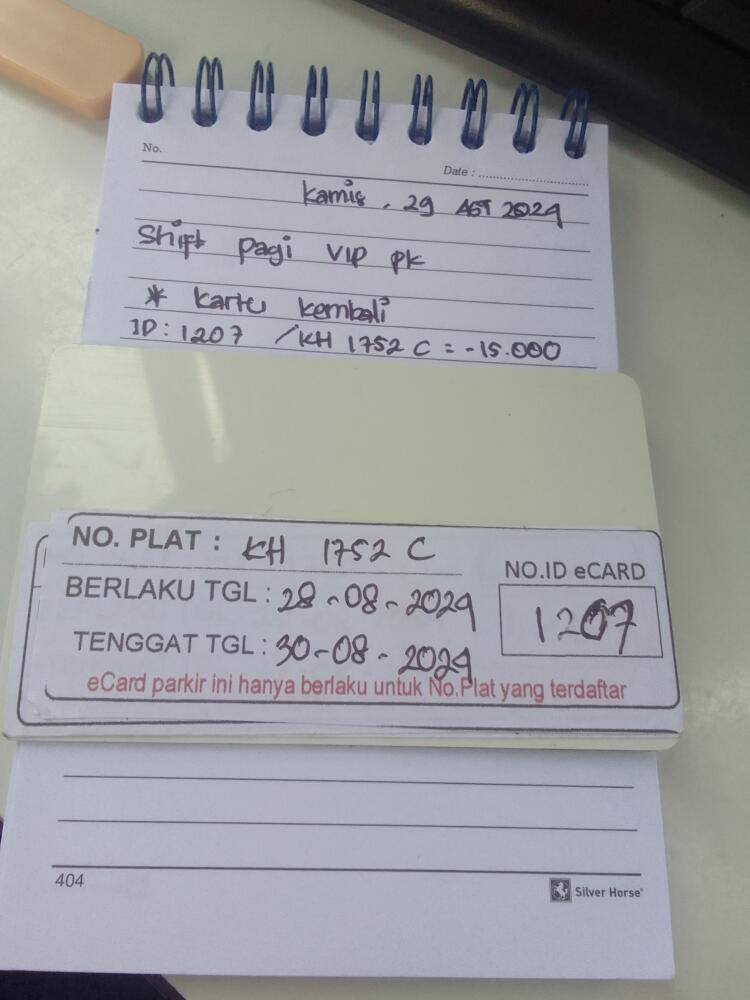 No.
Date :
Kamis, 29 AGT 2024
Shift pagi VIP PK
* Kartu kembali
ID: 1207 /KH 1752 C = -15.000
NO. PLAT : KH 1752 C
NO.ID eCARD
BERLAKU TGL : 28-08-2024
1207
TENGGAT TGL : 30-08-2024
eCard parkir ini hanya berlaku untuk No.Plat yang terdaftar
404
Silver Horse